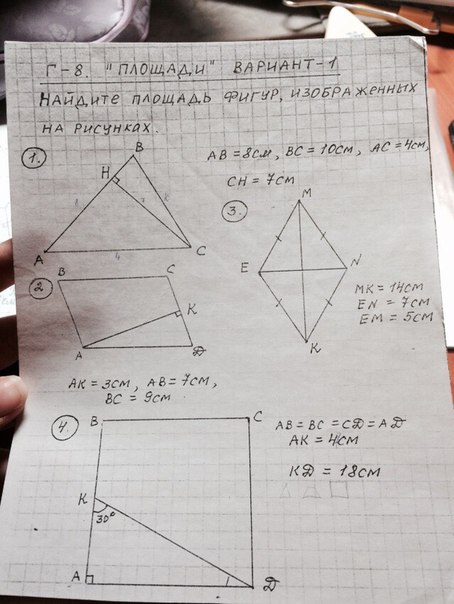 Г-8. "ПЛОЩАДИ" ВАРИАНТ-1
НАЙДИТЕ ПЛОЩАДЬ ФИГУР, ИЗОБРАЖЕННЫХ
НА РИСУНКАХ.
1.
AB=8см, BC=10см, AC=4см,
CH=7см
B
H
A
C
4
7
3.
M
E
N
K
MK=14см
EN=7см
EM=5см
2
B
C
K
A
D
AK=3см, AB=7см,
BC=9см
4.
B
C
K
30°
A
D
AB=BC=CD=AD
AK=4см
KD=18см